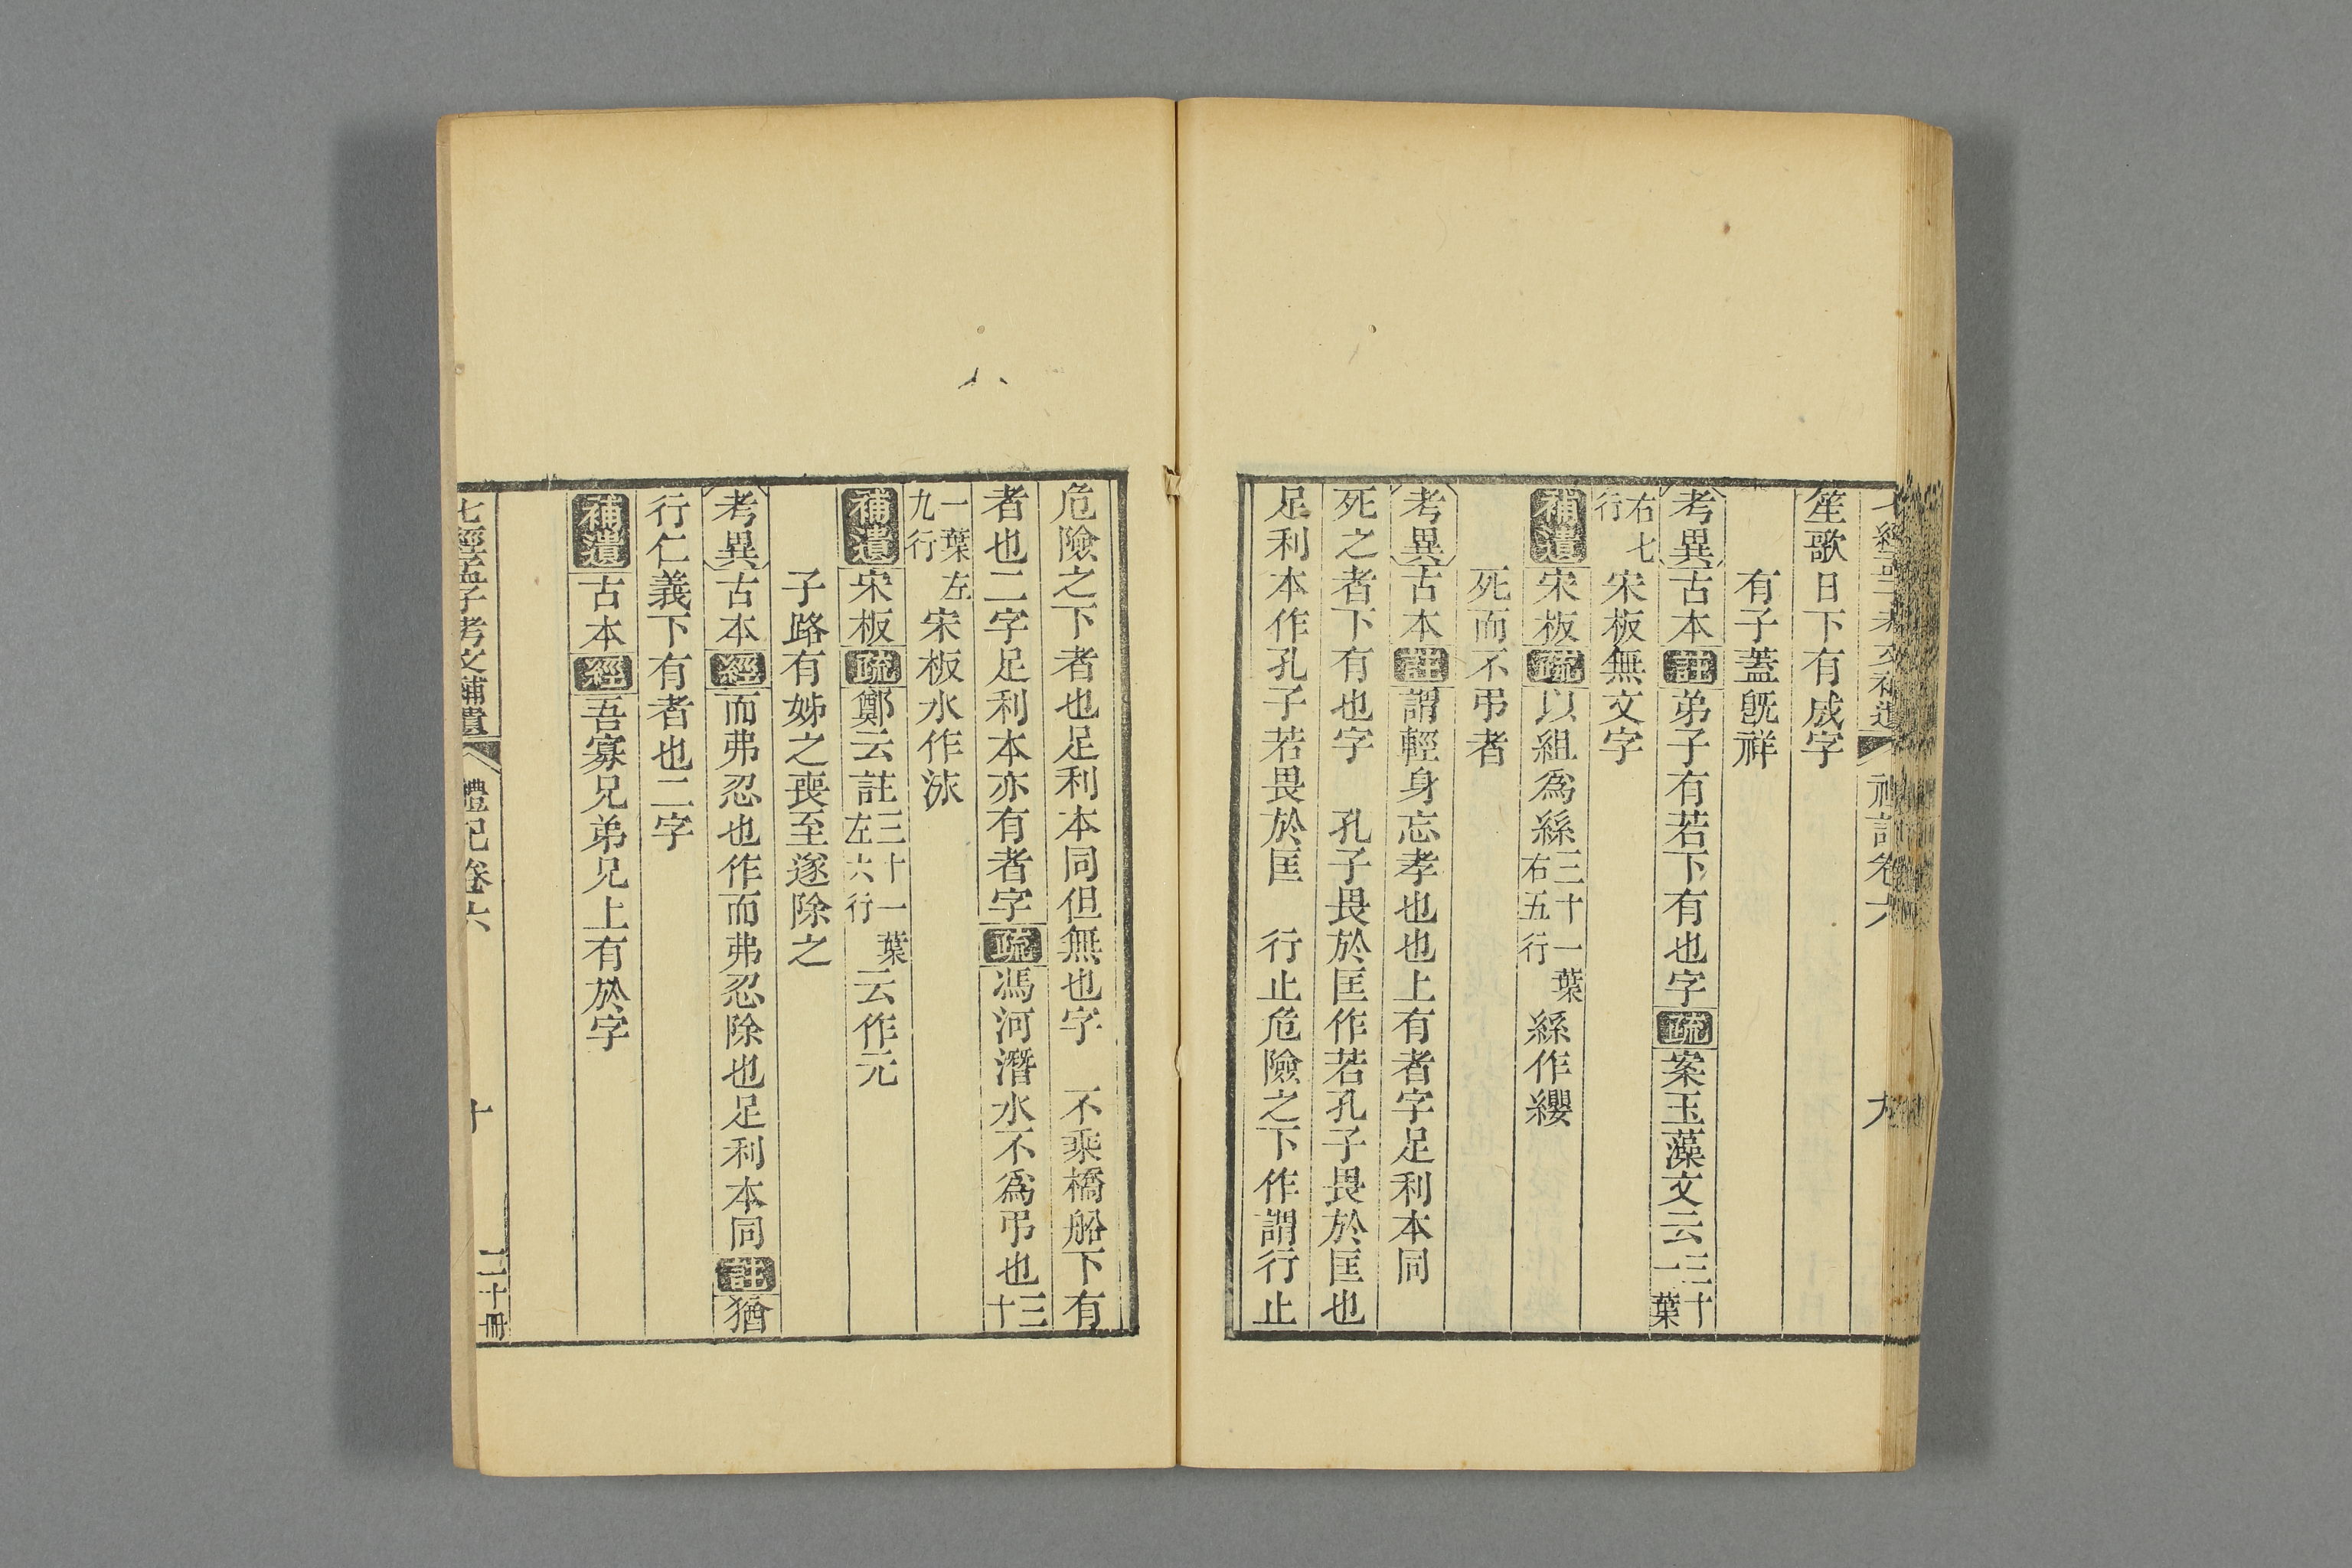 七經孟子考文補遺 禮記卷六 九
笙歌日下有成字
有子蓋旣祥
考異古本註弟子有若下有也字疏案玉藻文云三十一葉
右七行宋板無文字
補遺宋板疏以組爲緣三十一葉右五行緣作纓
死而不弔者
考異古本註謂輕身忘孝也也上有者字足利本同
死之者下有也字 孔子畏於匡作若孔子畏於匡也
足利本作孔子若畏於匡 行止危險之下作謂行止
危險之下者也足利本同但無也字 不乘橋舩下有
者也二字足利本亦有者字疏馮河潛水不爲弔也三十
一葉左九行宋板水作泳
補遺宋板疏鄭云註三十一葉左六行云作元
子路有姊之喪至遂除之
考異古本經而弗忍也作而弗忍除也足利本同註猶
行仁義下有者也二字
補遺古本經吾寡兄弟兄上有於字
七經孟子考文補遺 禮記卷六 十 二十冊